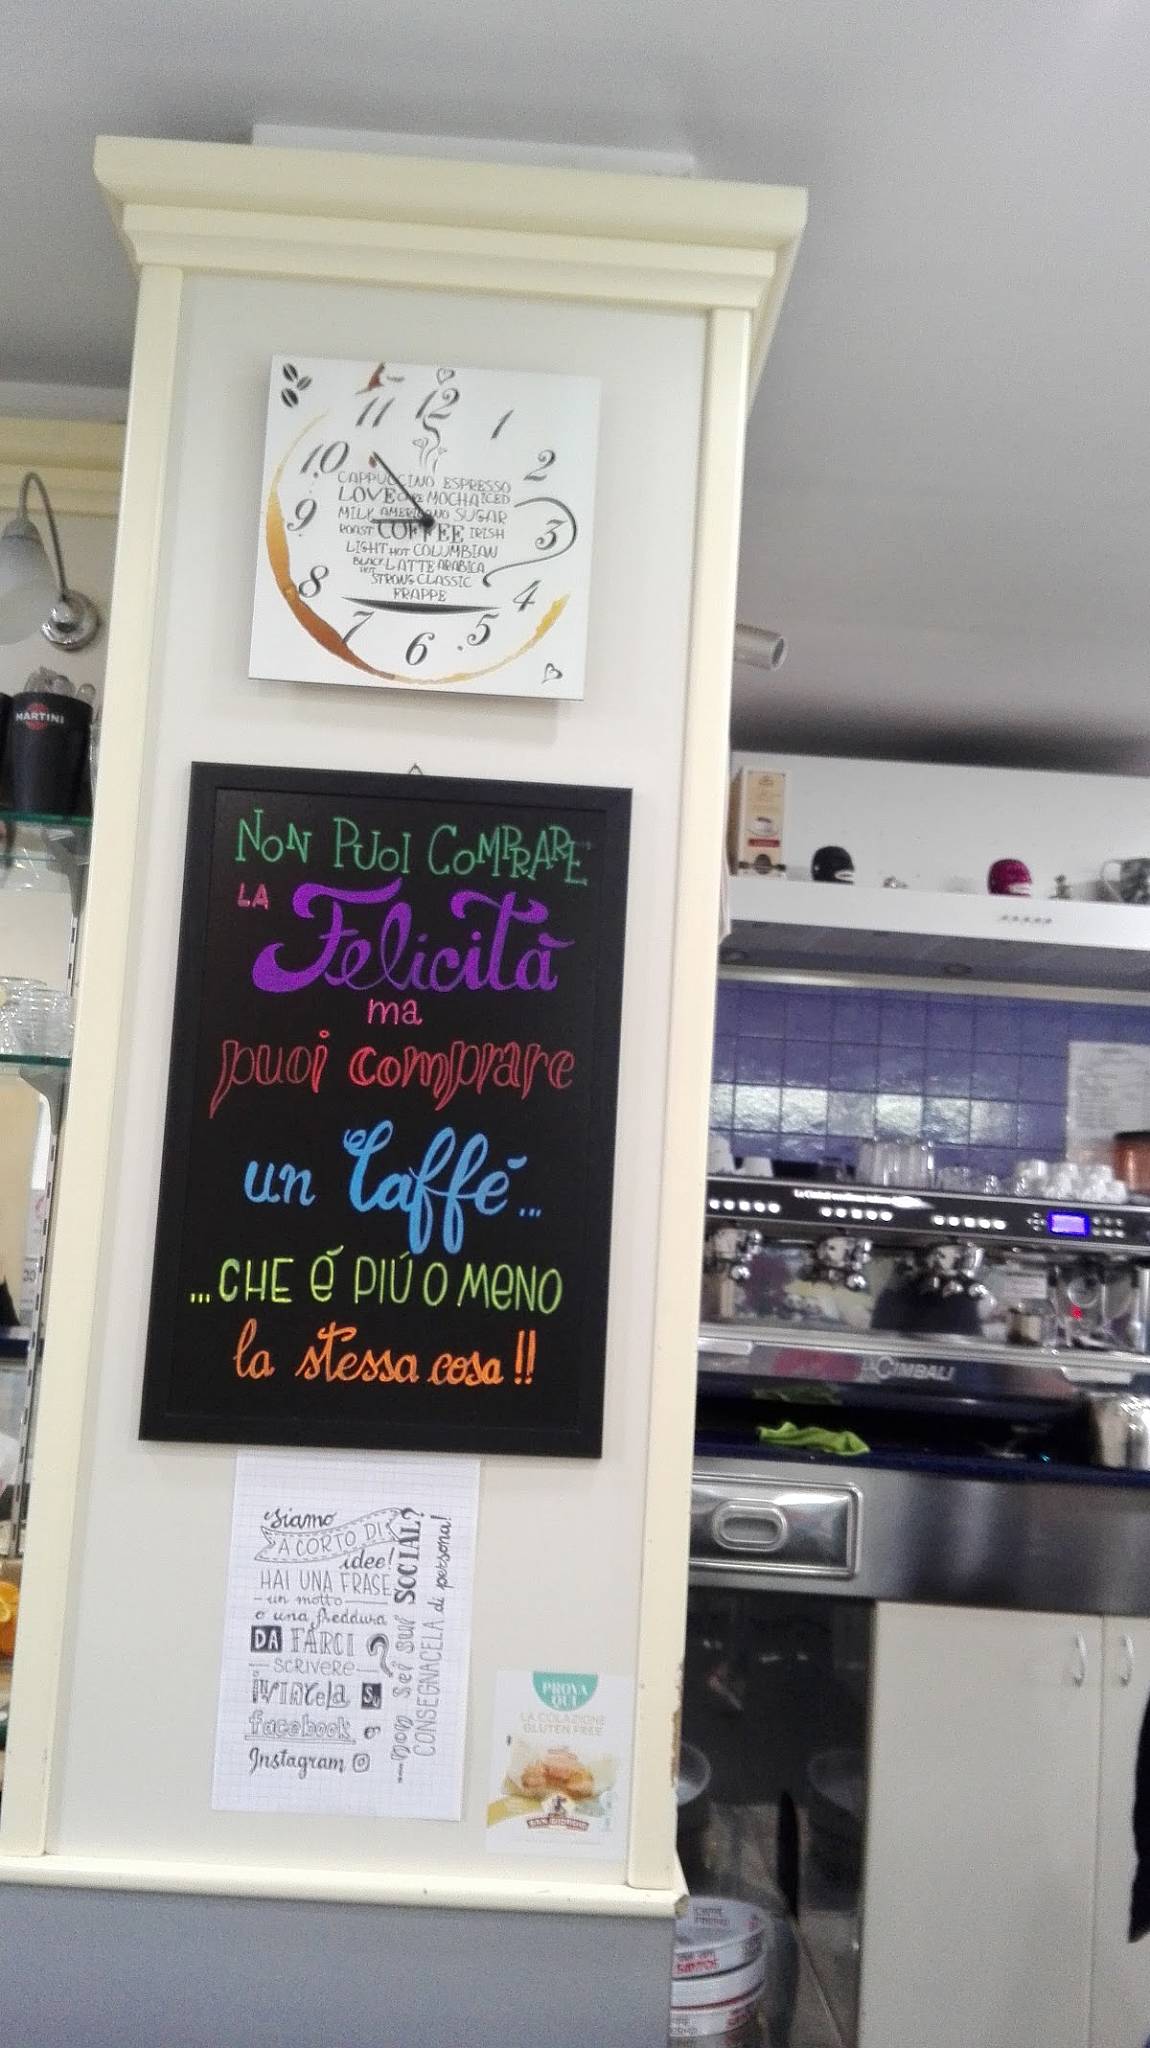 11 12 1
10 2
9 3
8 4
7 6 5
CAPPUCCINO ESPRESSO
LOVE CAKE MOCHA ICED
MILK AMERICANO SUGAR
ROAST COFFEE IRISH
LIGHT HOT COLUMBIAN
BLACK HOT LATTE ARABICA
STRONG CLASSIC
FRAPPE
MARTINI
NON PUOI COMPRARE
LA Felicità
ma
puoi comprare
un Caffé...
...CHE é PIÚ O MENO
la stessa cosa!!
siamo
A CORTO DI
idee!
HAI UNA FRASE
un motto
o una freddura
DA FARCI
SCRIVERE?
INVIACELA SU
facebook o
Instagram
...non sei sui SOCIAL?
CONSEGNACELA di persona!
PROVA
QUI
LA COLAZIONE
GLUTEN FREE
SAN GIORGIO
LaCIMBALI